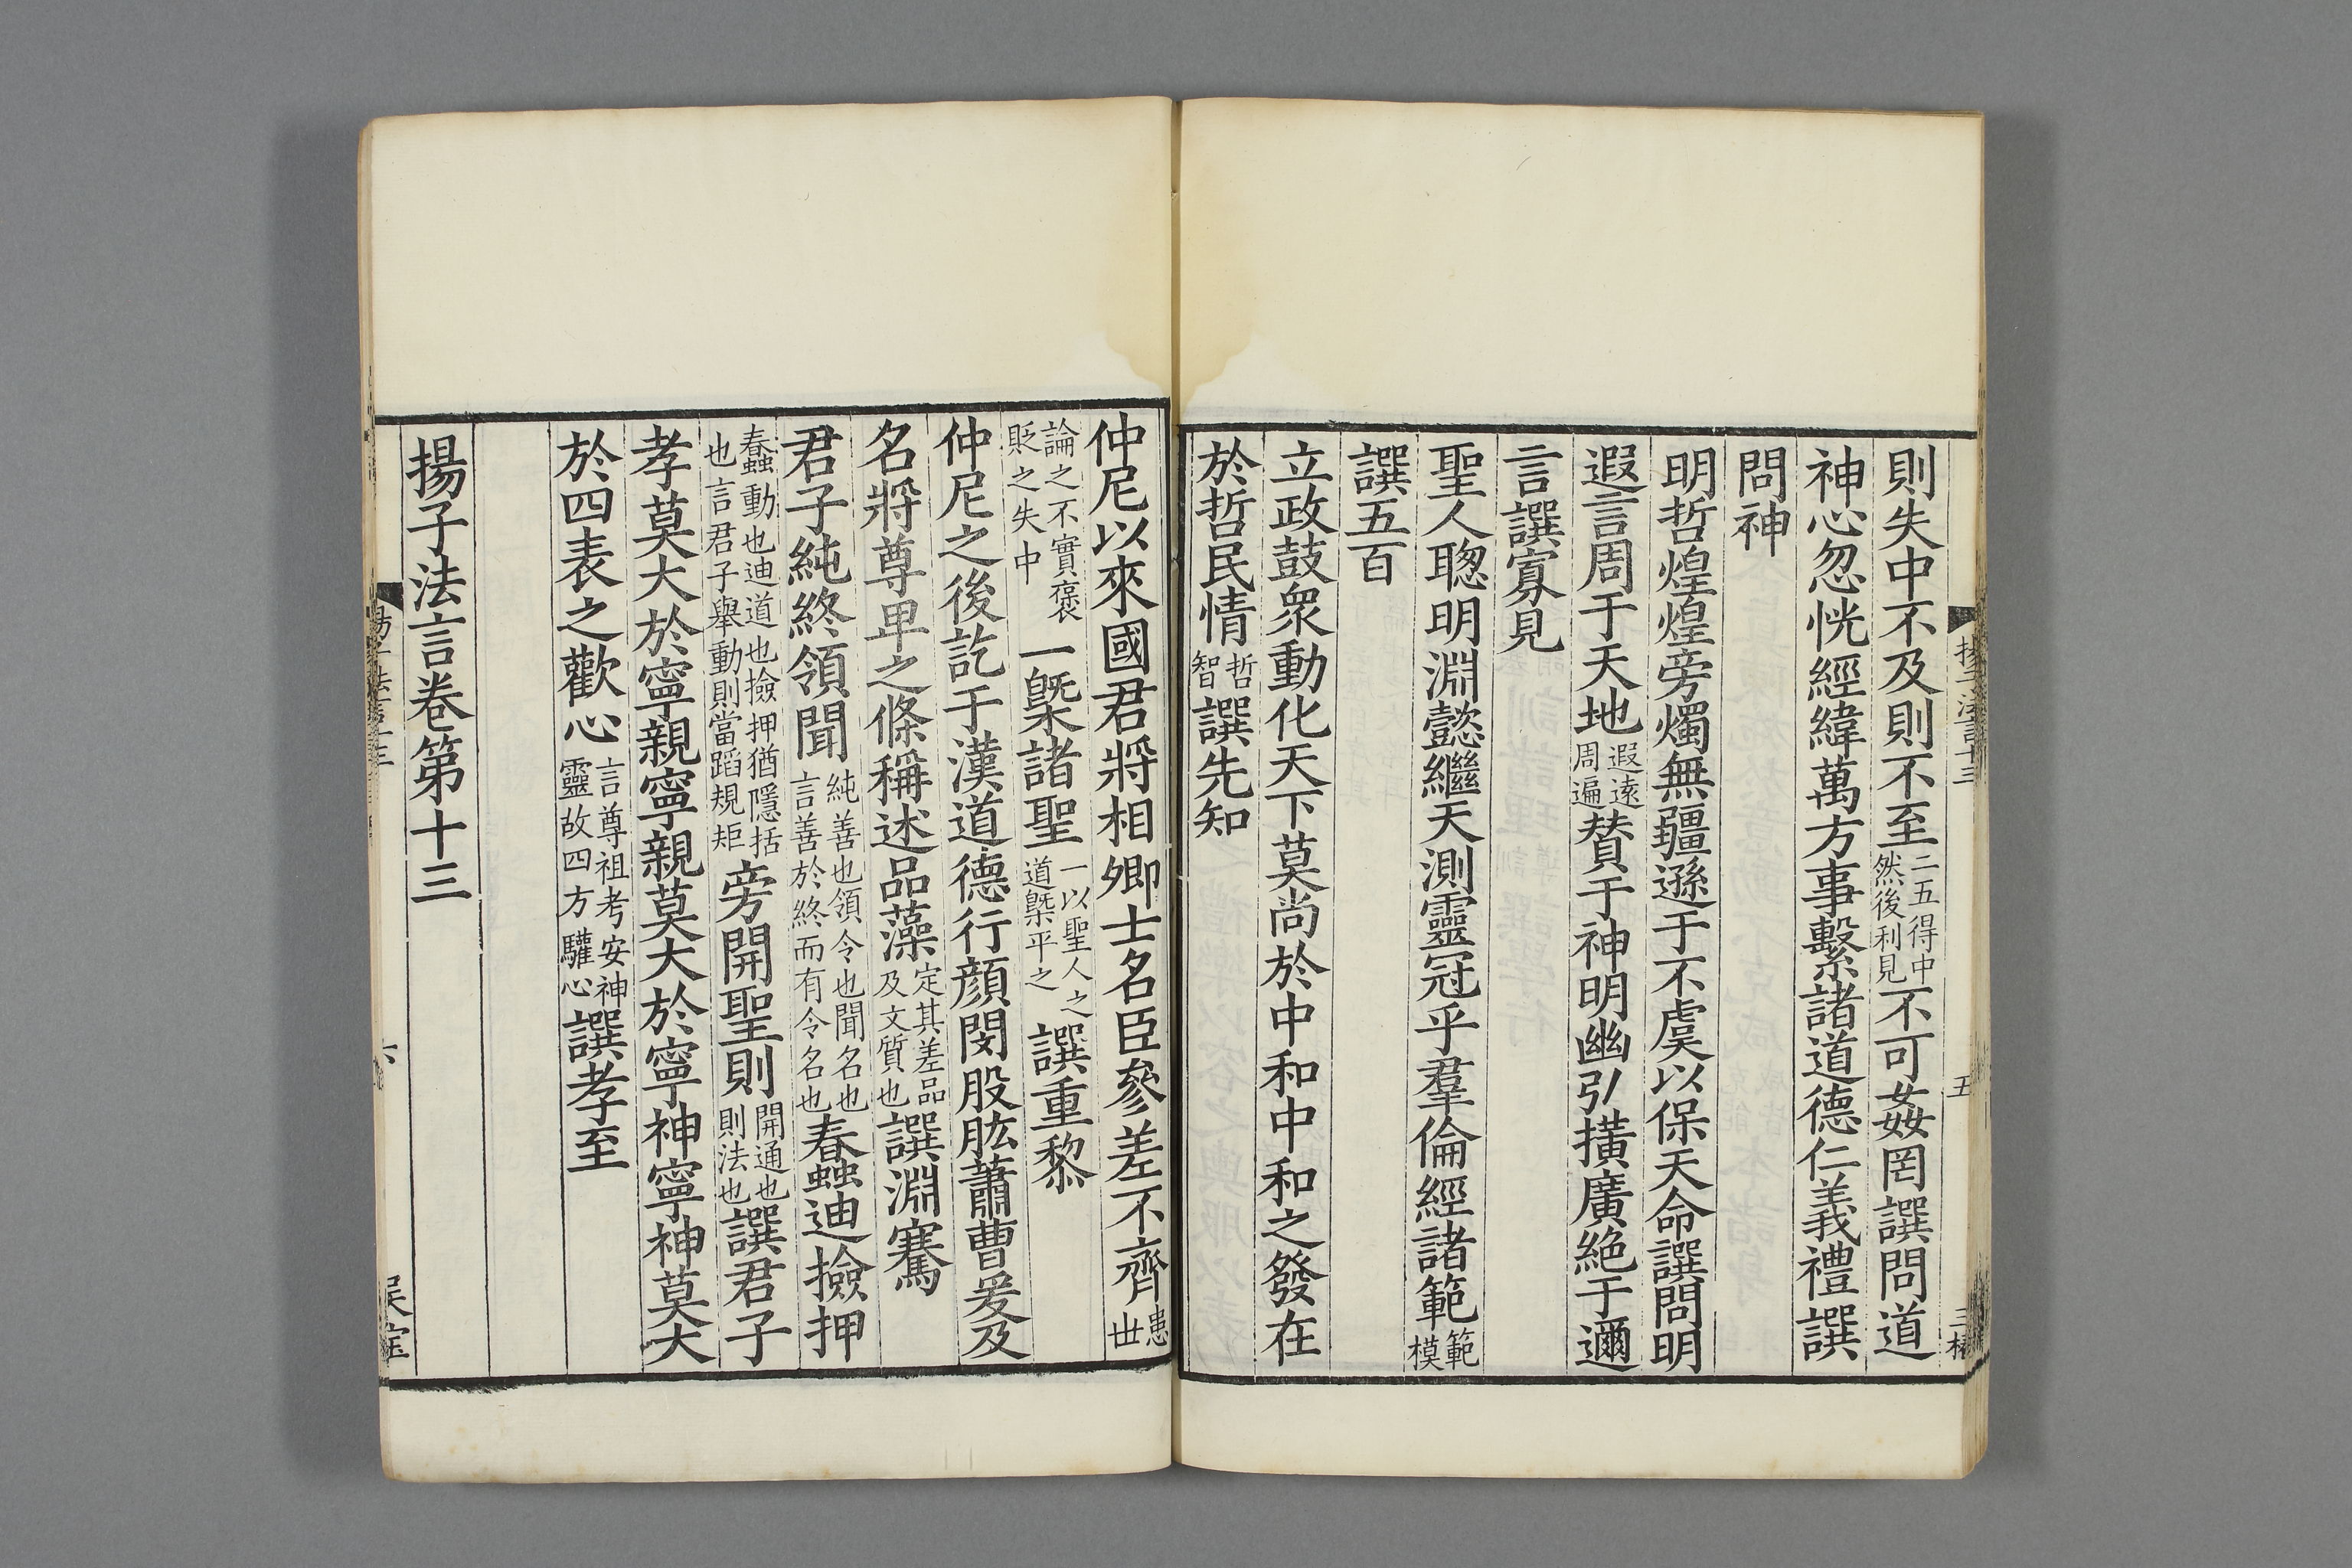 則失中不及則不至二五得中然後利見不可姦罔譔問道
神心忽恍經緯萬方事繫諸道德仁義禮譔
問神
明哲煌煌旁燭無疆遜于不虞以保天命譔問明
遐言周于天地遐遠周遍賛于神明幽弘撗廣絶于邇
言譔寡見
聖人聦明淵懿繼天測靈冠乎羣倫經諸範範模
譔五百
立政鼓衆動化天下莫尚於中和中和之發在
於哲民情哲智譔先知
仲尼以來國君將相卿士名臣參差不齊患世
論之不實襃貶之失中一槩諸聖一以聖人之道槩平之譔重黎
仲尼之後訖于漢道德行顔閔股肱蕭曹爰及
名將尊卑之條稱述品藻定其差品及文質也譔淵騫
君子純終領聞純善也領令也聞名也言善於終而有令名也蠢迪撿押
蠢動也迪道也撿押猶隱括也言君子舉動則當蹈規矩旁開聖則開通也則法也譔君子
孝莫大於寧親寧親莫大於寧神寧神莫大
於四表之歡心言尊祖考安神靈故四方驩心譔孝至
揚子法言卷第十三